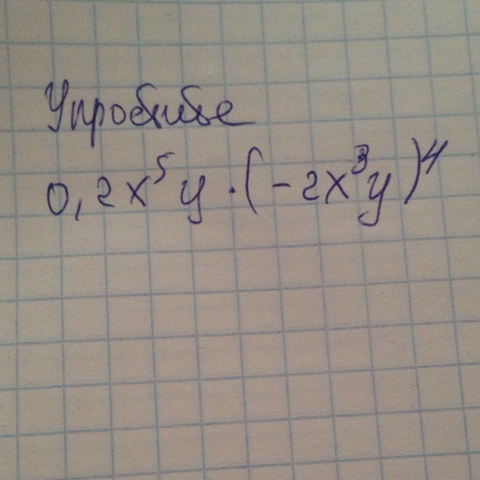 Упробитье
0,2x⁵y·(-2x³y)⁴